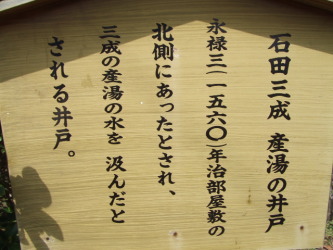 石田三成 産湯の井戸
永禄三(一五六〇)年治部屋敷の
北側にあったとされ、
三成の産湯の水を 汲んだと
される井戸。